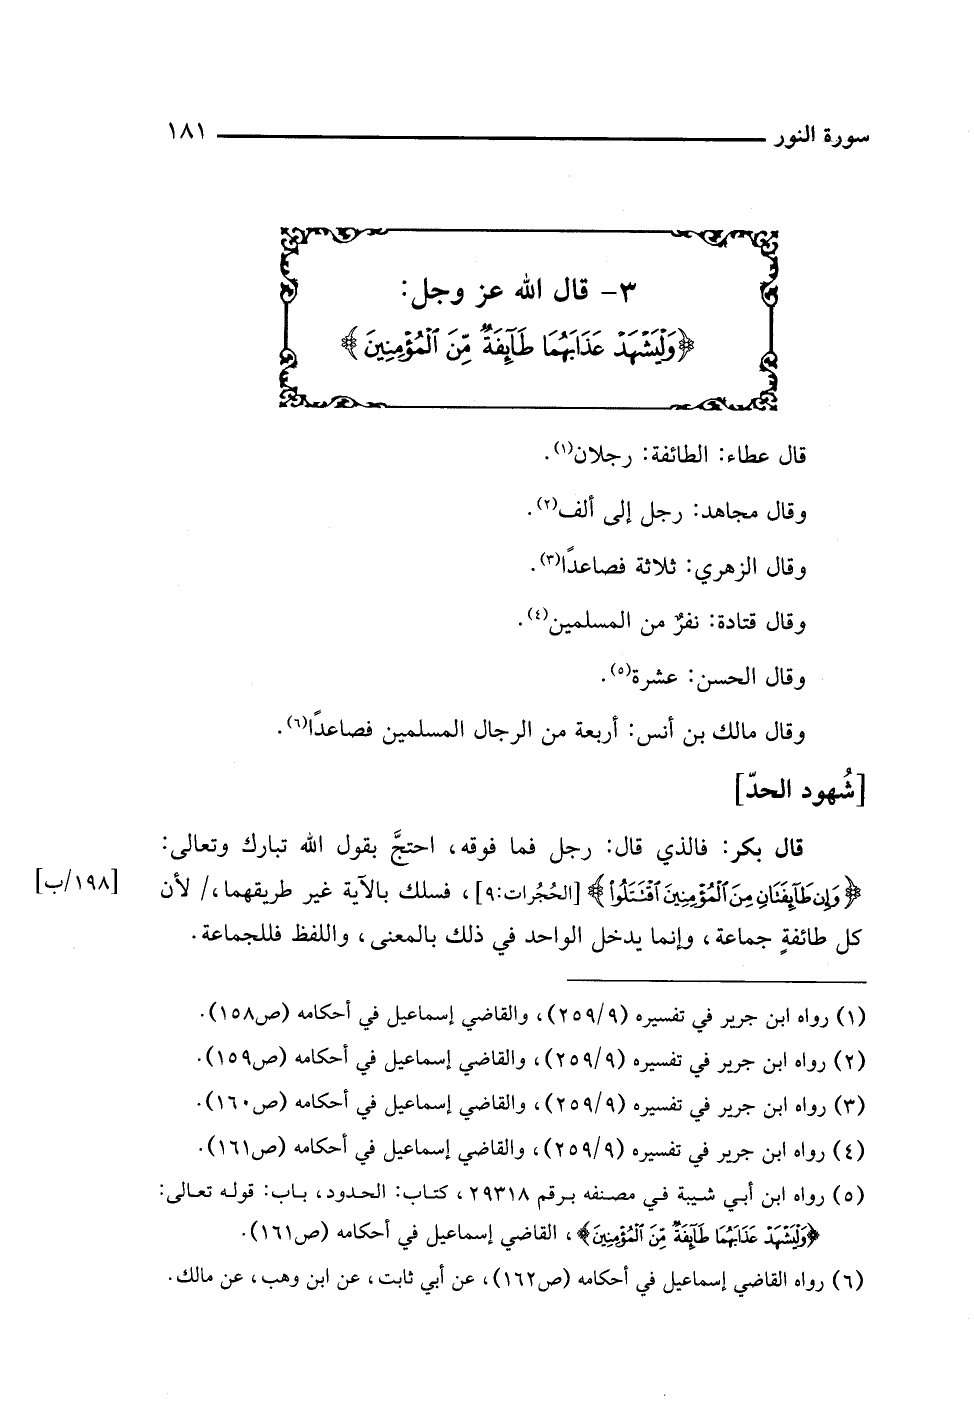 سورة النور ١٨١
٣- قال الله عز وجل:
﴿وَلْيَشْهَدْ عَذَابَهُمَا طَآئِفَةٌ مِّنَ ٱلْمُؤْمِنِينَ﴾
قال عطاء: الطائفة: رجلان(١).
وقال مجاهد: رجل إلى ألف(٢).
وقال الزهري: ثلاثة فصاعدًا(٣).
وقال قتادة: نفرٌ من المسلمين(٤).
وقال الحسن: عشرة(٥).
وقال مالك بن أنس: أربعة من الرجال المسلمين فصاعدًا(٦).
[شُهود الحدّ]
قال بكر: فالذي قال: رجل فما فوقه، احتجَّ بقول الله تبارك وتعالى:
﴿وَإِن طَآئِفَتَانِ مِنَ ٱلْمُؤْمِنِينَ ٱقْتَتَلُوا۟﴾ [الحُجُرات:٩]، فسلك بالآية غير طريقهما،/ لأن [١٩٨/ب]
كل طائفةٍ جماعة، وإنما يدخل الواحد في ذلك بالمعنى، واللفظ فللجماعة.
(١) رواه ابن جرير في تفسيره (٢٥٩/٩)، والقاضي إسماعيل في أحكامه (ص١٥٨).
(٢) رواه ابن جرير في تفسيره (٢٥٩/٩)، والقاضي إسماعيل في أحكامه (ص١٥٩).
(٣) رواه ابن جرير في تفسيره (٢٥٩/٩)، والقاضي إسماعيل في أحكامه (ص١٦٠).
(٤) رواه ابن جرير في تفسيره (٢٥٩/٩)، والقاضي إسماعيل في أحكامه (ص١٦١).
(٥) رواه ابن أبي شيبة في مصنفه برقم ٢٩٣١٨، كتاب: الحدود، باب: قوله تعالى:
﴿وَلْيَشْهَدْ عَذَابَهُمَا طَآئِفَةٌ مِّنَ ٱلْمُؤْمِنِينَ﴾، القاضي إسماعيل في أحكامه (ص١٦١).
(٦) رواه القاضي إسماعيل في أحكامه (ص١٦٢)، عن أبي ثابت، عن ابن وهب، عن مالك.